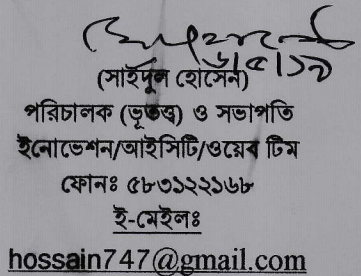 ৬/৫/১৯
(সাইদুল হোসেন)
পরিচালক (ভূতত্ত্ব) ও সভাপতি
ইনোভেশন/আইসিটি/ওয়েব টিম
ফোনঃ ৫৮৩১২২১৬৮
ই-মেইলঃ
hossain747@gmail.com